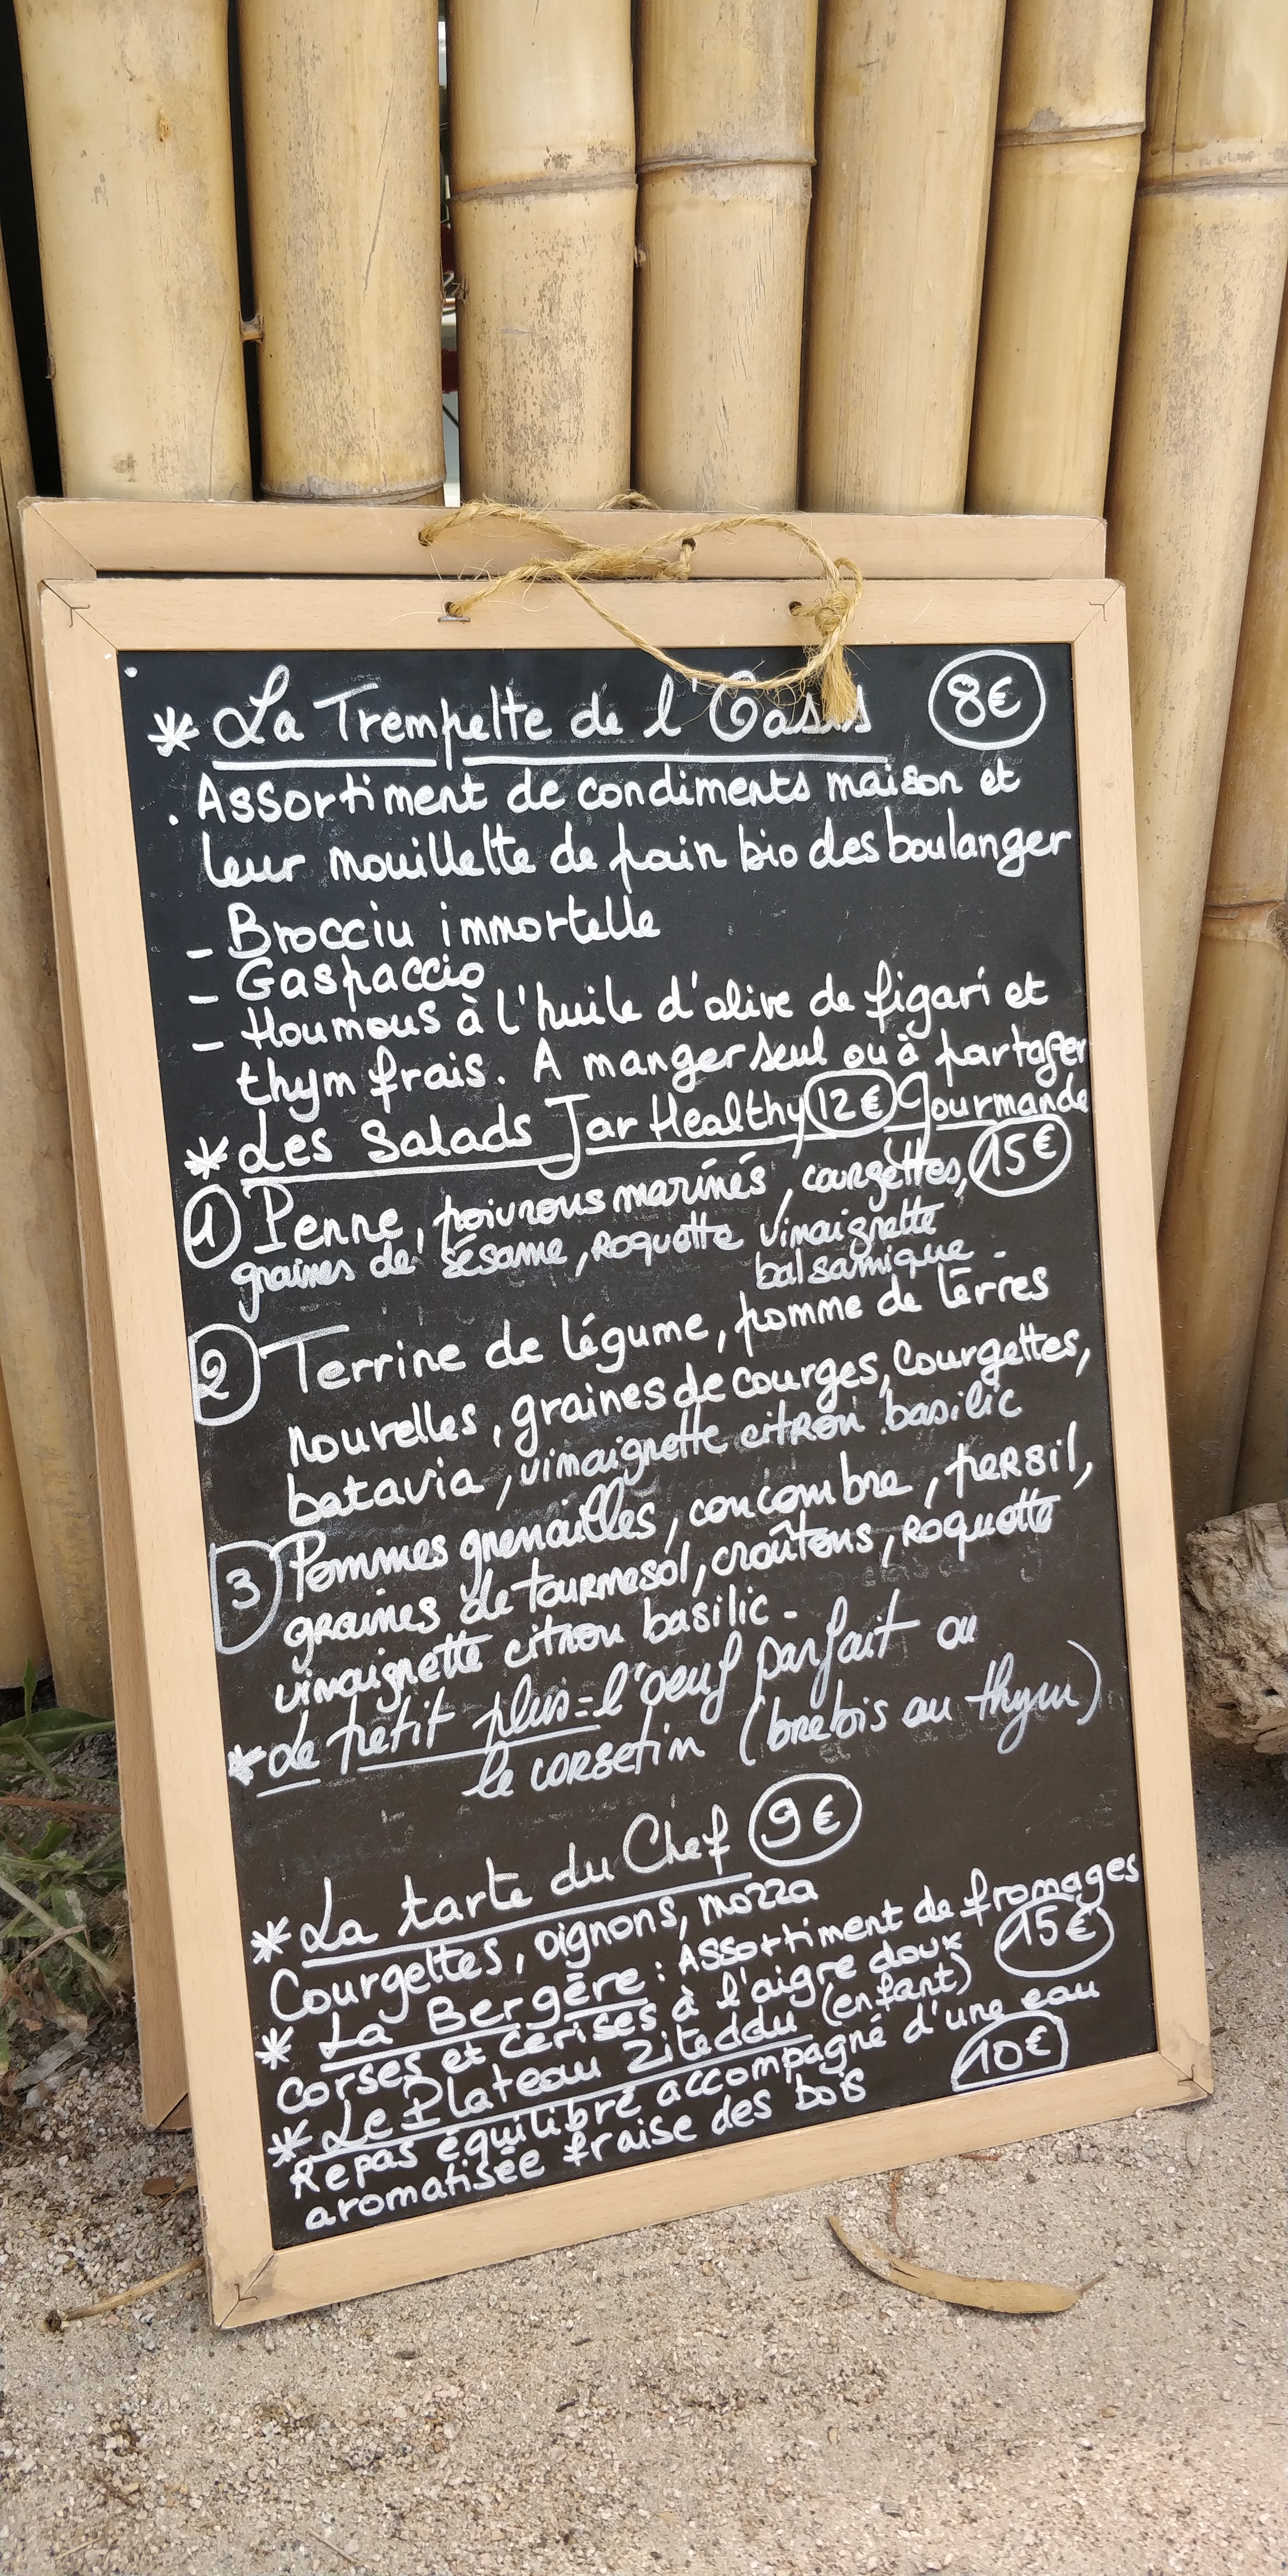 * La Trempette de l'Oasis 8€
. Assortiment de condiments maison et
leur mouillette de pain bio des boulanger
- Brocciu immortelle
- Gaspaccio
- Houmous à l'huile d'olive de figari et
thym frais. A manger seul ou à partager
* Les Salads Jar Healthy 12€ Gourmande
15€
1 Penne, poivrons marinés, courgettes,
graines de sésame, roquette vinaigrette
balsamique.
2 Terrine de légume, pomme de terres
nouvelles, graines de courges, Courgettes,
batavia, vinaigrette citron basilic
3 Pommes grenailles, concombre, persil,
graines de tournesol, croûtons, roquette
vinaigrette citron basilic-
* Le petit plus = l'oeuf parfait ou
le corsetin (brebis au thym)
* La tarte du Chef 9€
Courgettes, oignons, mozza
* La Bergère : Assortiment de fromages
corses et cerises à l'aigre doux 15€
* Le Plateau Ziteddu (enfant)
Repas équilibré accompagné d'une eau
aromatisée fraise des bois 10€